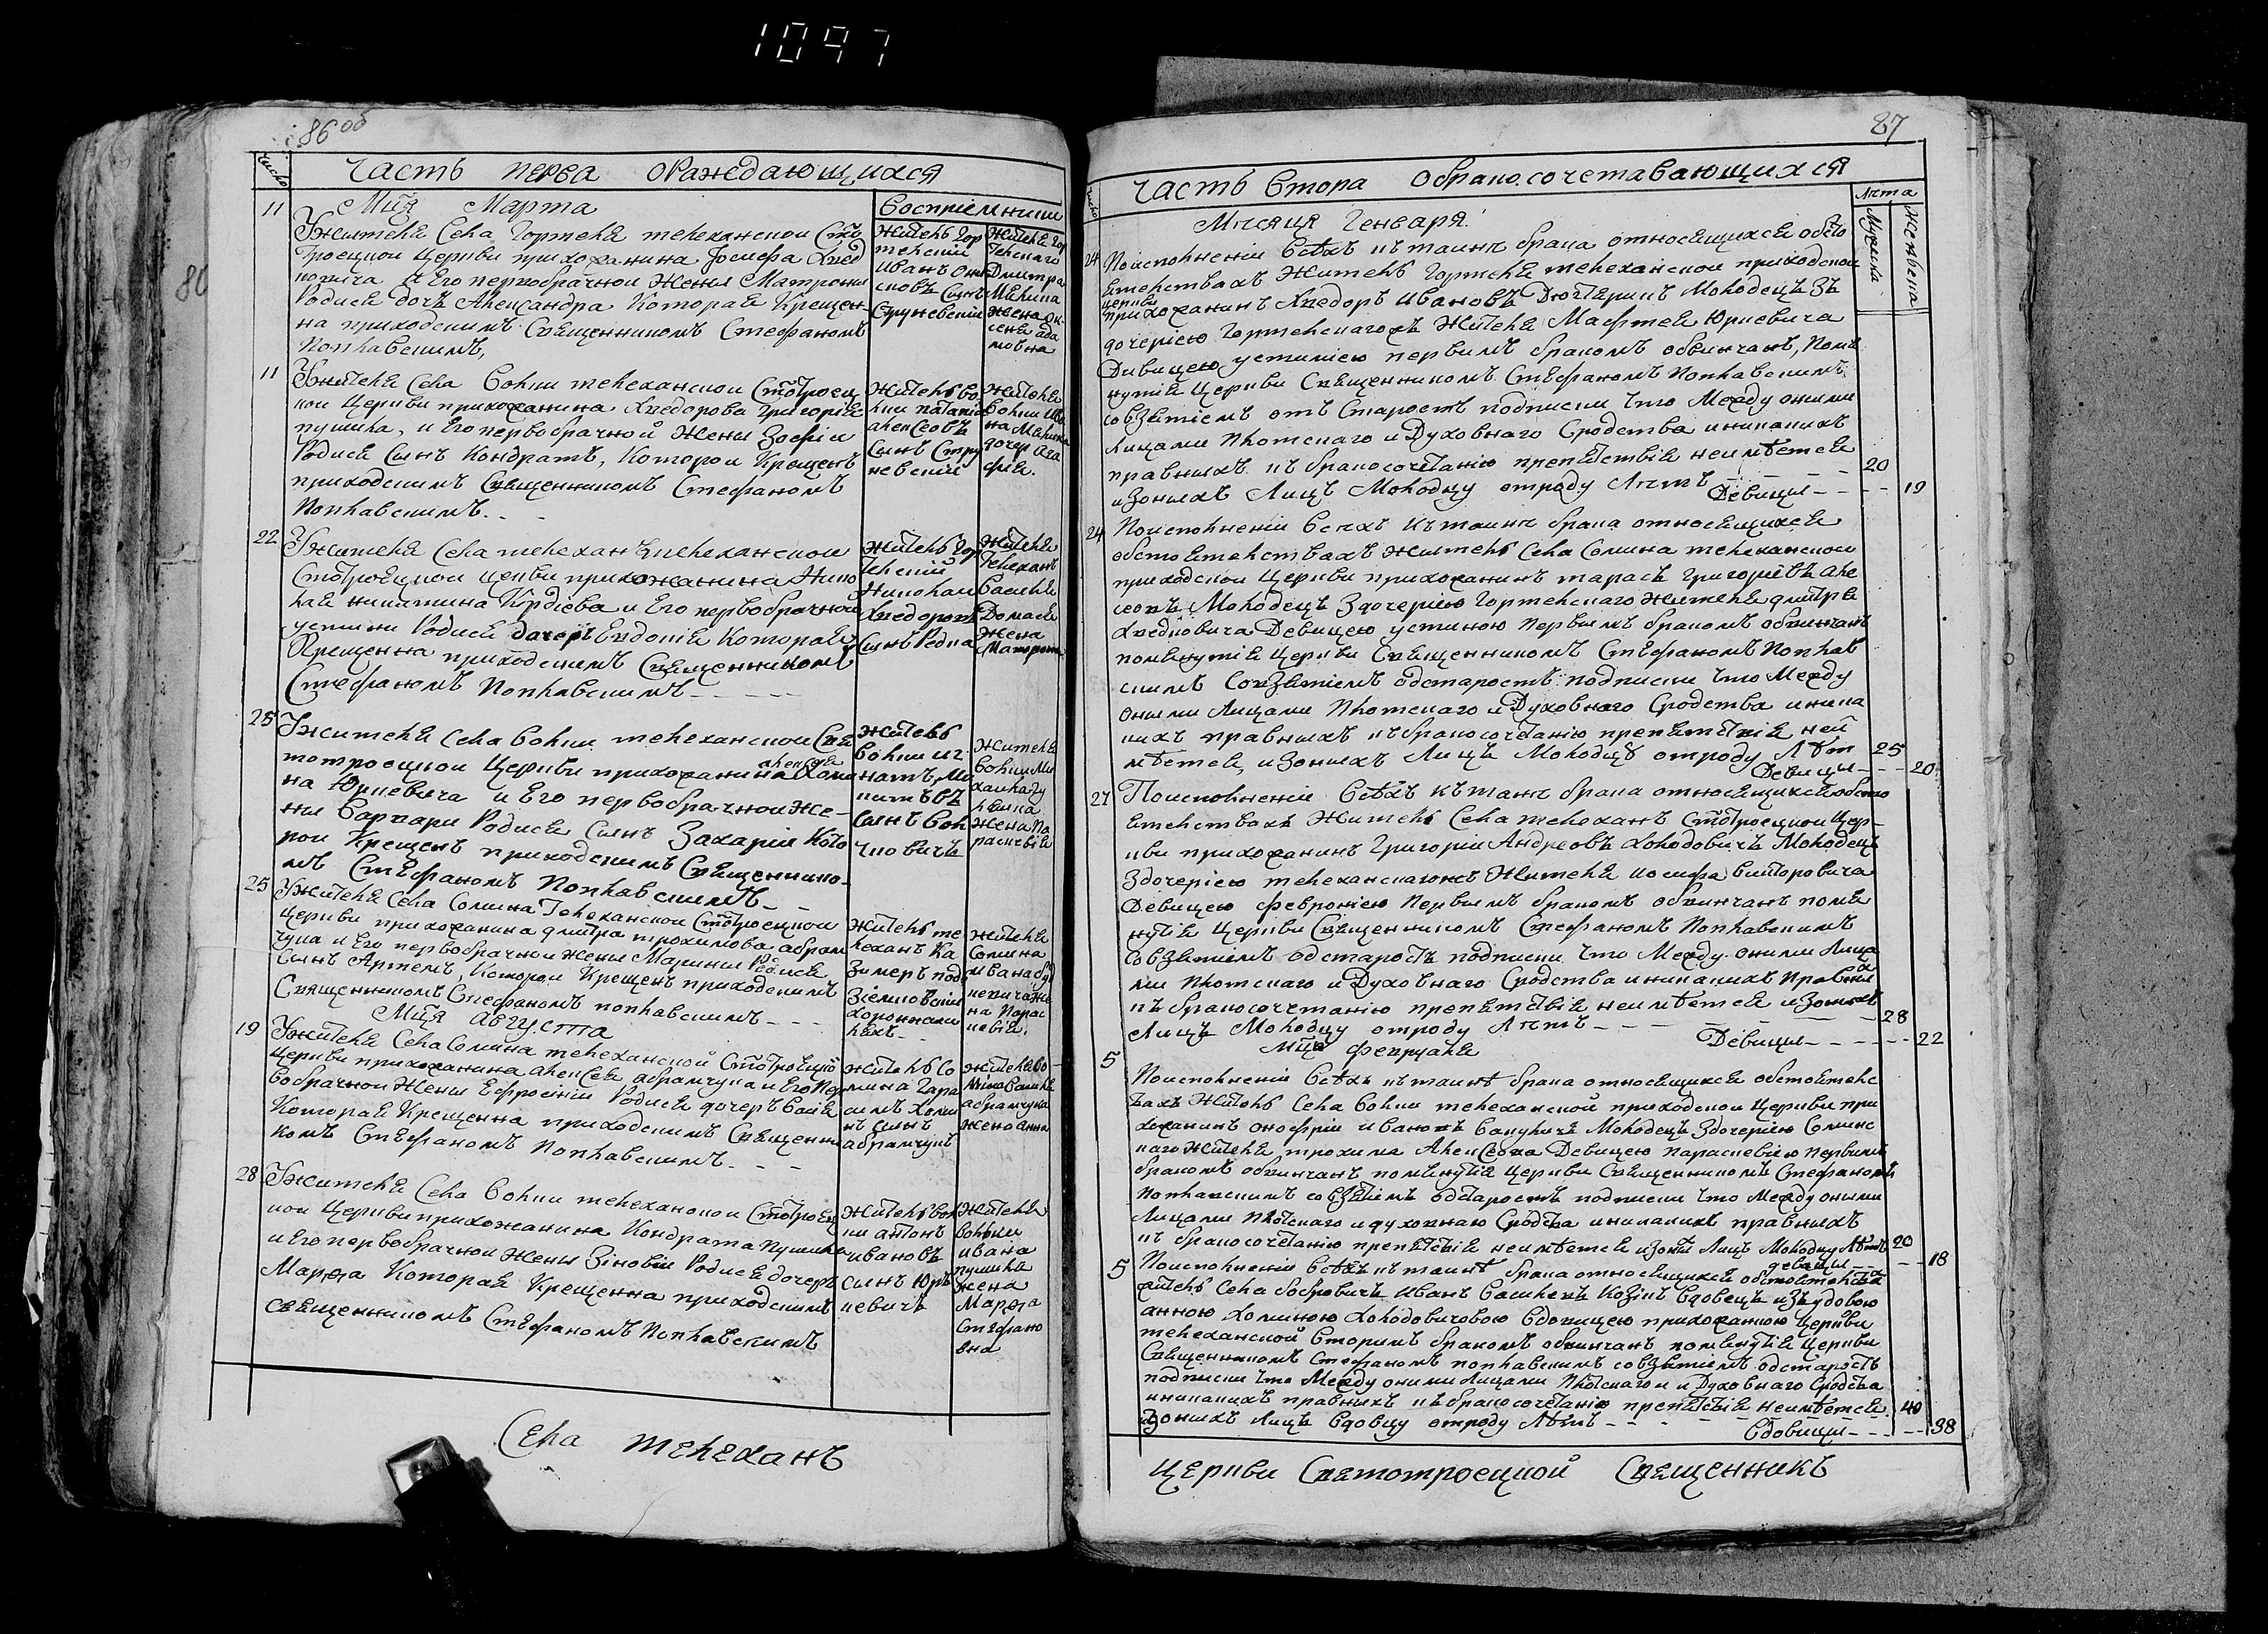 1097
86 об
Число
Часть перва ѡРаждающихся
Мця Марта
Восприемники
11
Ужителя Села Гортеля телеханской Стѣ
Троецкой Церкви прихожанина Иосифа Хвед
ковича и Его первобрачной Жени Матрони
Родися дочъ Александра Которая Крещен
на приходскимъ Священникомъ Стефаномъ
Поплавскимъ,
Житель Гор
тельскій
Иванъ
Сынъ
Стружевскій
Жителя Гор
тельскаго
Дмитра
Жена
11
Ужителя Села Волки телеханской Стотроец
кой Церкви прихожанина Хведорова Григорія
пушика, и Его первобрачной Жени Зофіи
Родися Сынъ Кондратъ, Которой Крещенъ
приходскимъ Священникомъ Стефаномъ
Поплавскимъ.
Житель Во
лки
алексеовъ
Сынъ Стру
невский
Жителя
Волки Ива
на
дочер Ага
фія.
22
Ужителя Села телеханъ телеханской
Стотроецкой Церкви прихожанина Нико
лая никитина Кордіева и Его первобрачной
устини Родися дочеръ Евдокія Которая
Крещенна приходскимъ Священникомъ
Стефаномъ Поплавскимъ
Житель Гор
тельскій
Николай
Хведоровъ
Сынъ Редка
Жителя
Телеханъ
Василя
Домася
Жена
Матрона
25
Ужителя Села Волки телеханской Свя
тотроецкой Церкви прихожанина алексѣя Хоми
на Юркевича и Его первобрачной Же-
ни Варвари Родися Сынъ Захарія Кото
рой Крещенъ приходскимъ Священнико-
мъ Стефаномъ Поплавскимъ
Житель
Волки иг
натъ, Ми
китовъ
Сынъ Вол
човичъ
Жителя
Волки Ми
хайла
Жена Па
раскевія
25
Ужителя Села Сомина Телеханской Стотроецкой
Церкви прихожанина дмитра трохимова абрам
чука и Его первобрачной жени Марини Родися
Сынъ Артемъ, Которой Крещенъ приходскимъ
Священникомъ Стефаномъ поплавскимъ
Житель те
леханъ Ка
зимеръ под
зіемковскій
Жителя
Сомина
ивана
жи
на Парас
кевія.
Мця Августа
19
Ужителя Села Сомина телеханской Стотроецкой
Церкви прихожанина алексея абрамчука и Его Пер
вобрачной Жени Ефросініи Родися дочеръ
Которая Крещенна приходскимъ Священни
комъ Стефаномъ Поплавскимъ
Житель Со
мина Гара
симъ Хоми
нъ сынъ
абрамчукъ
Жителя Со-
мина Василя
абрамчука
жена анна
28
Ужителя Села Волки телеханской Стотроец
кой Церкви прихожанина Кондрата Пушика
и Его первобрачной Жени Зіновіи Родися дочеръ
Марѳа Которая Крещенна приходскимъ
священникомъ Стефаномъ Поплавскимъ
Житель Вол
ки антонъ
ивановъ
сынъ Юр
кевичъ
Жителя
Волки
ивана
пушика
жена
Марѳа
Стефано
вна
Села телеханъ
87
Число
Часть Втора ѡбракосочетавающихся
Лѣта
Мужска
Женвска
Мѣсяця Генваря
24
Поисполненіи Всѣхъ къ таинѣ брака относящихся обсто
ятельствахъ Житель Гортеля телеханской приходской
церкви
прихожанинъ Хведоръ Ивановъ Молодецъ Зъ
дочерією Гортельскагожъ Жителя Мафтея Юркевича
Дивицею устинією первимъ бракомъ обвинчанъ, Помя
нутія Церкви Священникомъ Стефаномъ Поплавскимъ
совзятіемъ отъ Старостъ подписки что Между оними
Лицами Плотскаго и Духовнаго Сродства иникакихъ
правнихъ къ бракосочетанію препятствія неимѣется
изонихъ Лицъ Молодцу отроду Лѣтъ 20
Девици 19
24
Поисполненіи Всѣхъ Къ таинѣ брака относящихся
обстоятельствахъ Житель Села Сомина телеханской
приходской Церкви прихожанинъ тарасъ григоріевъ але
ксеовъ Молодецъ Здочерією Гортельскаго Жителя дмитра
Хведковича Девицею устиною Первимъ бракомъ обвинчанъ
помянутія Церкви Священникомъ Стефаномъ Поплав
скимъ Совзятіемъ одстаростъ подписки что Между
оними Лицами Плотскаго и Духовнаго Сродства иника
кихъ правнихъ къ бракосочетанію препятствія ней
мѣется, изонихъ Лицъ Молодцу отроду Лѣт 25
Девици 20
27
Поисполненіи Всѣхъ Къ таинѣ брака относящихся обсто
ятельствахъ Житель Села телеханъ Стотроецкой Цер-
кви прихожанинъ Григорій Андреовъ Холодовичъ Молодецъ
Здочерією телеханскагожъ Жителя иосифа викторовича
Девицею февронією Первимъ бракомъ обвинчанъ помя
нутія Церкви Священникомъ Стефаномъ Поплавскимъ
Совзятіемъ одстаростъ подписки что Между оними Лица
ми Плотскаго и Духовнаго Сродства иникакихъ Правних
къ бракосочетанію препятствія неимѣется изонихъ
Лицъ Молодцу отроду Лѣтъ 28
Девици 22
Мця февруаля
5
Поисполненіи Всѣхъ къ таинѣ брака относящихся обстоятелс
твахъ Житель Села Волки телеханской приходской Церкви при
хожанинъ онофрій ивановъ Молодецъ Здочерією Соминс
каго Жителя, трохима Алексеова Девицею параскевією первимъ
бракомъ обвинчанъ помянутія Церкви Священникомъ Стефаномъ
Поплавскимъ совзятіемъ одстаростъ подписки что Между оними
Лицами Плотскаго и духовнаго Сродства иникакихъ правнихъ
къ бракосочетанію препятствія неимѣется изоних Лицъ Молодцу Лѣтъ 20
девици 18
5
Поисполненіи Всѣхъ къ таинѣ брака относящихся обстоятелствъ
житель Села бобровичъ Иванъ Василевъ Козікъ Вдовецъ изъ удовою
анною Хоминою Холодовичовою Вдовицею прихожанкою Церкви
телеханской Вторимъ бракомъ обвинчанъ помянутія Церкви
Священникомъ Стефаномъ поплавскимъ совзятіемъ одстаростъ
подписки что Между оними Лицами Плотскаго и Духовнаго Сродства
иникакихъ правнихъ къ бракосочетанію препятствія неимѣется 40
изонихъ Лицъ Вдовцу отроду Лѣтъ
Вдовици 38
Церкви Святотроецкой Священникъ